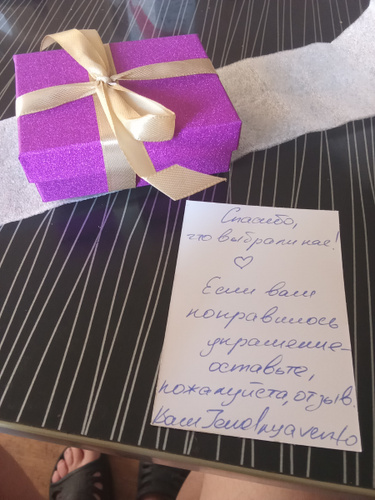 Спасибо,
что выбрали нас!
Если вам
понравилось
украшение-
оставьте,
пожалуйста, отзыв.
Ваш